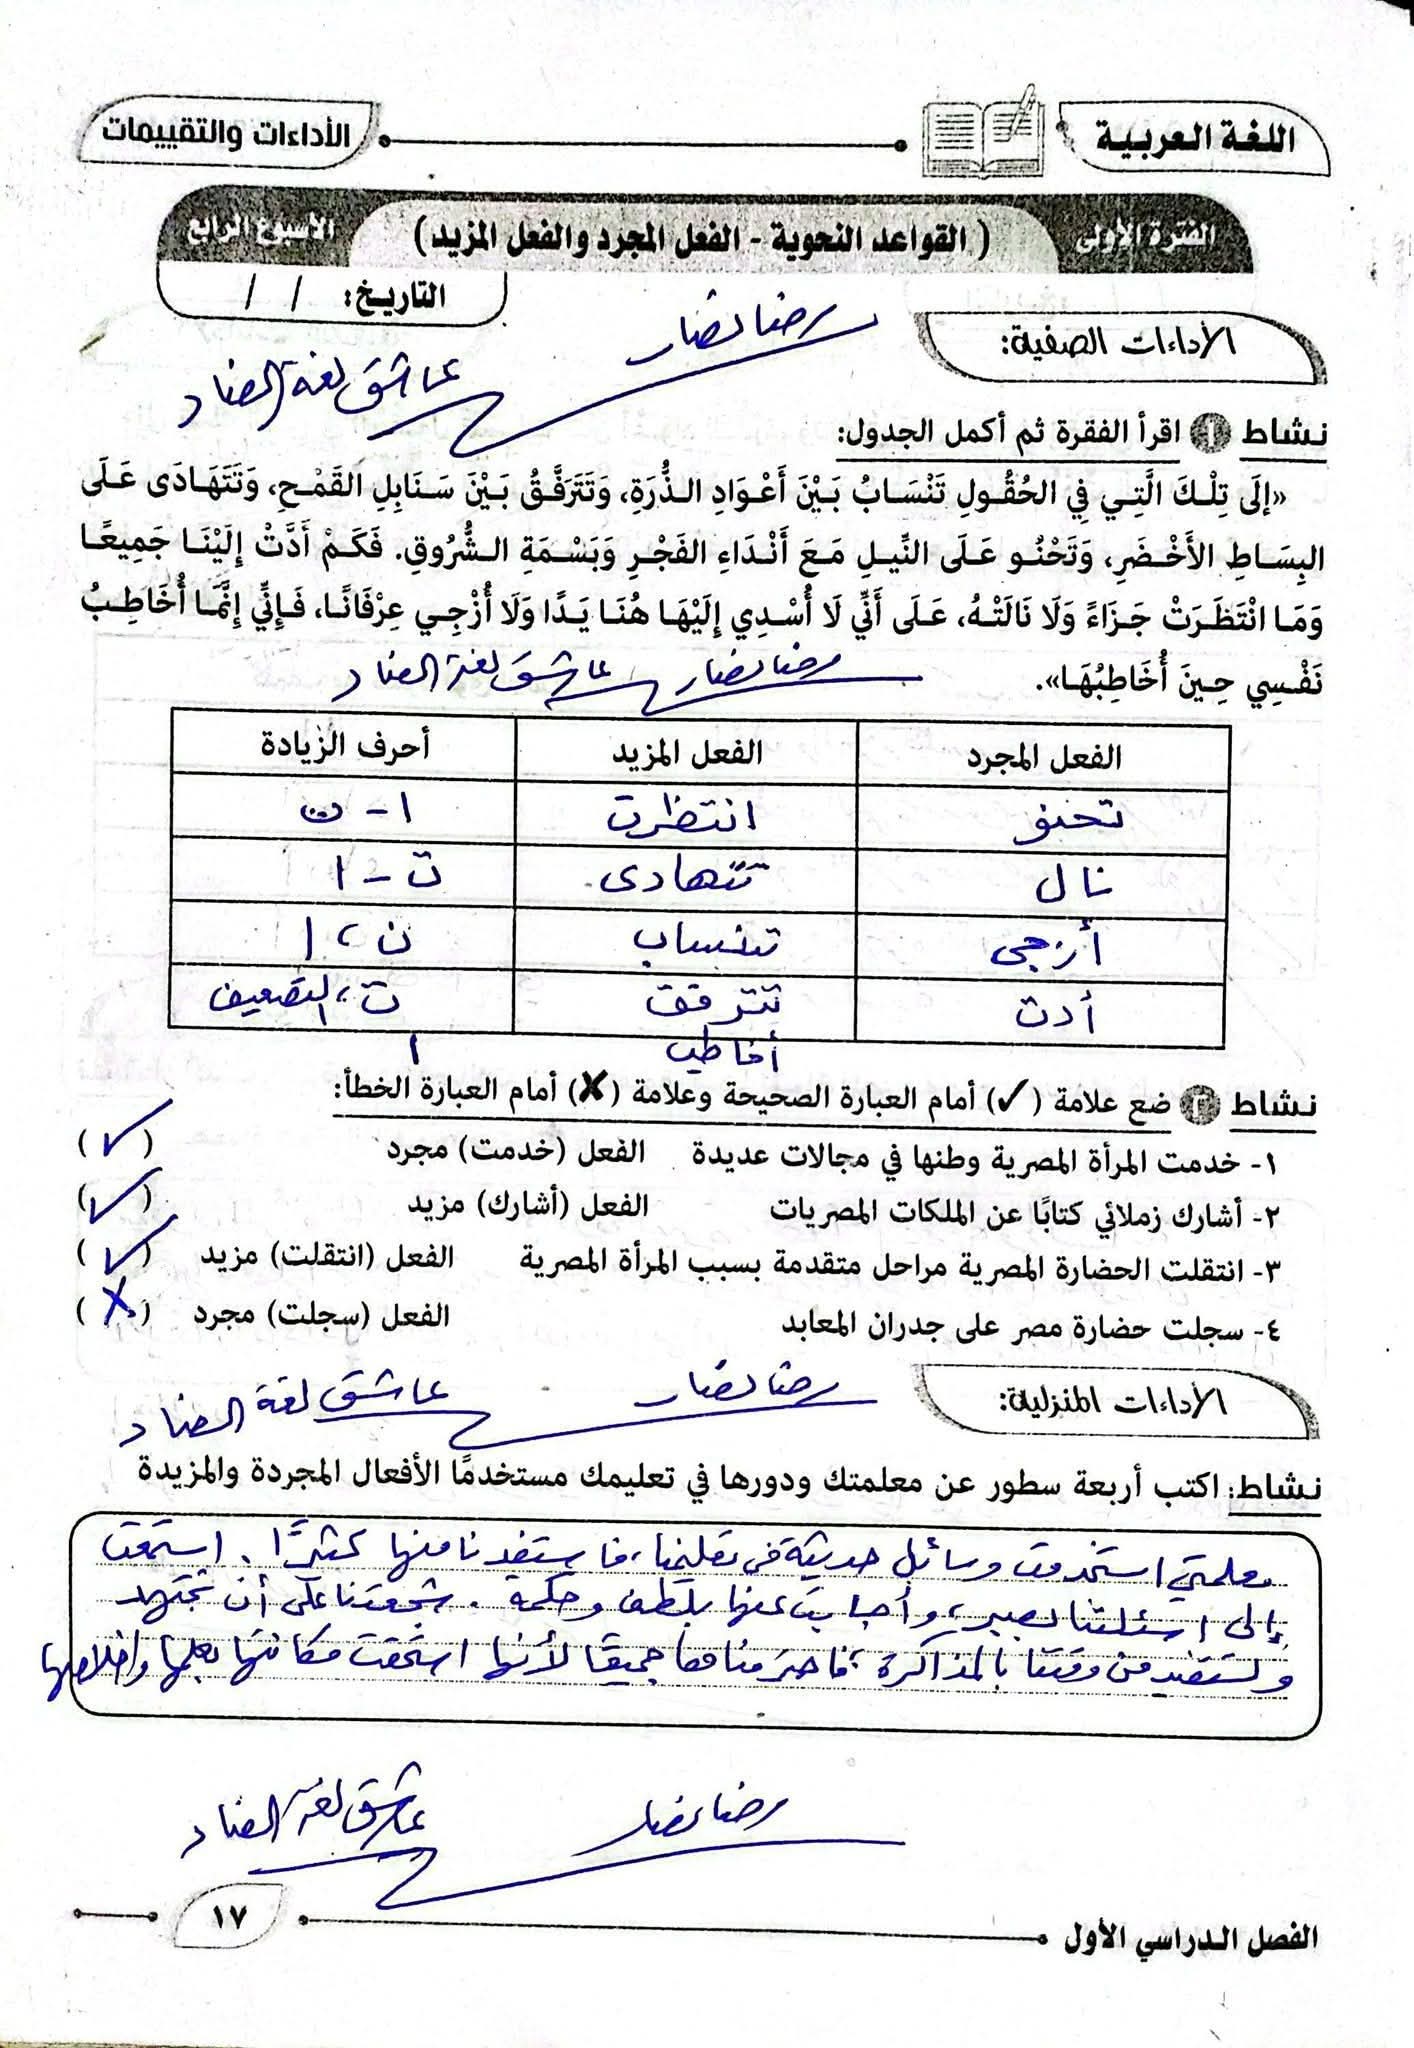 اللغة العربية
الأداءات والتقييمات
الفترة الأولى
( القواعد النحوية - الفعل المجرد والفعل المزيد )
الأسبوع الرابع
التاريخ: / /
الأداءات الصفية:
رضا نصار
عاشق لغة الضاد
نشاط ١ اقرأ الفقرة ثم أكمل الجدول:
«إلَى تِلْكَ الَّتِي فِي الحُقُولِ تَنْسَابُ بَيْنَ أَعْوَادِ الذُّرَةِ، وَتَتَرَفَّقُ بَيْنَ سَنَابِلِ القَمْحِ، وَتَتَهَادَى عَلَى
البِسَاطِ الأَخْضَرِ، وَتَحْنُو عَلَى النِّيلِ مَعَ أَنْدَاءِ الفَجْرِ وَبَسْمَةِ الشُّرُوقِ. فَكَمْ أَدَّتْ إِلَيْنَا جَمِيعًا
وَمَا انْتَظَرَتْ جَزَاءً وَلَا نَالَتْهُ، عَلَى أَنِّي لَا أُسْدِي إِلَيْهَا هُنَا يَدًا وَلَا أُزْجِي عِرْفَانًا، فَإِنِّي إِنَّمَا أُخَاطِبُ
نَفْسِي حِينَ أُخَاطِبُهَا».
رضا نصار عاشق لغة الضاد
الفعل المجرد الفعل المزيد أحرف الزيادة
تحنو انتظرت ا - ت
نال تتهادى ت - ا
أزجى تنساب ن ، ا
أدت تترفق ت ، التضعيف
أخاطب ا
نشاط ٢ ضع علامة (✓) أمام العبارة الصحيحة وعلامة (✗) أمام العبارة الخطأ:
١- خدمت المرأة المصرية وطنها في مجالات عديدة الفعل (خدمت) مجرد (✓)
٢- أشارك زملائي كتابًا عن الملكات المصريات الفعل (أشارك) مزيد (✓)
٣- انتقلت الحضارة المصرية مراحل متقدمة بسبب المرأة المصرية الفعل (انتقلت) مزيد (✓)
٤- سجلت حضارة مصر على جدران المعابد الفعل (سجلت) مجرد (✗)
الأداءات المنزلية:
رضا نصار عاشق لغة الضاد
نشاط: اكتب أربعة سطور عن معلمتك ودورها في تعليمك مستخدمًا الأفعال المجردة والمزيدة
معلمتي استخدمت وسائل حديثة فى تعليمنا، فاستفدنا منها كثيرًا. استمعت
إلى اسئلتنا بصبر، وأجابت عنها بلطف وحكمة. شجعتنا على أن نجتهد
ونستفيد من وقتنا بالمذاكرة، فاحترمناها جميعًا لأنها استحقت مكانتها بعلمها وإخلاصها
رضا نصار عاشق لغة الضاد
الفصل الدراسي الأول
١٧